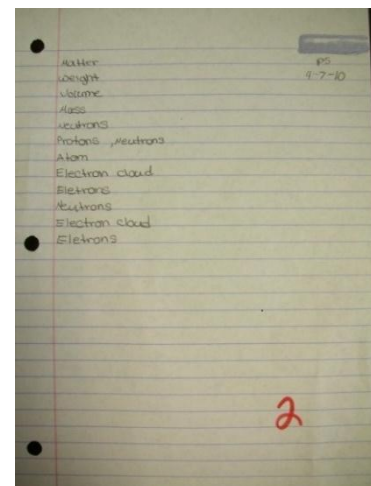 Matter
PS
Weight
9-7-10
Volume
Mass
Neutrons
Protons , Neutrons
Atom
Electron cloud
Eletrons
Neutrons
Electron cloud
Eletrons
2